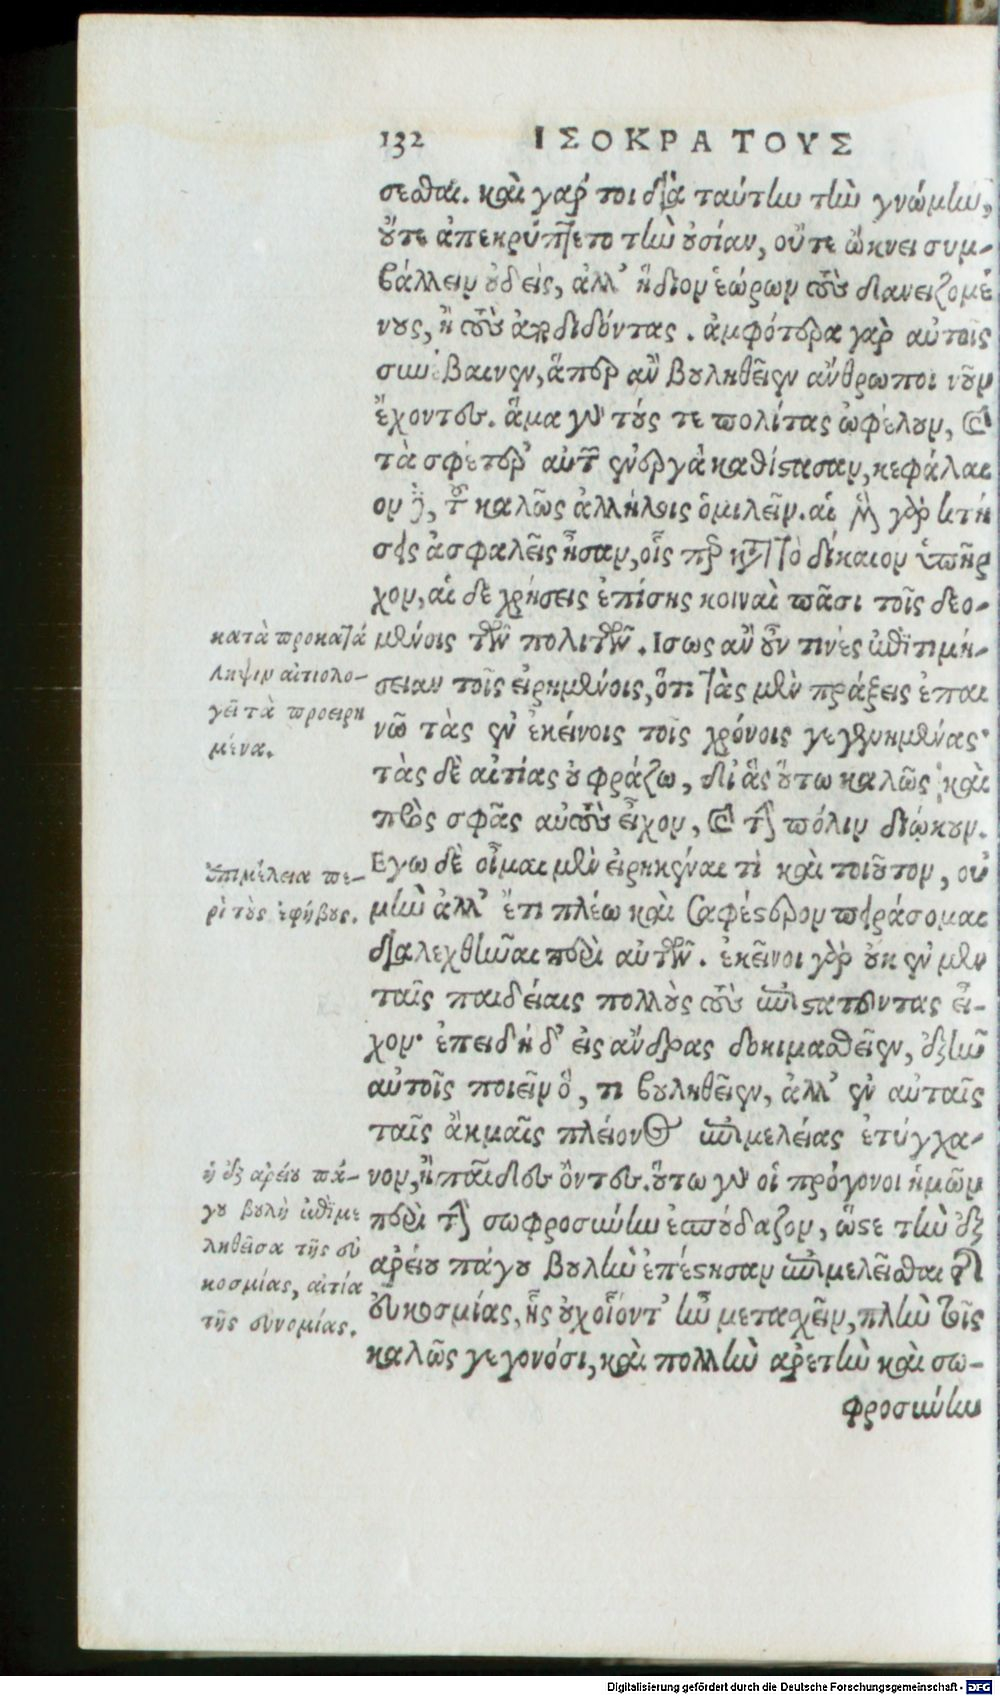 132 ΙΣΟΚΡΑΤΟΥΣ
σεσθαι. καὶ γάρ τοι διὰ ταύτην τὴν γνώμην,
οὔτε ἀπεκρύπτετο τὴν οὐσίαν, οὔτε ὤκνει συμ-
βάλλειν οὐδεὶς, ἀλλ' ἥδιον ἑώρων τοὺς δανειζομέ
νους, ἢ τοὺς ἀποδιδόντας. ἀμφότερα γὰρ αὐτοῖς
συνέβαινεν, ἅπερ ἂν βουληθεῖεν ἄνθρωποι νοῦν
ἔχοντες. ἅμα γὰρ τούς τε πολίτας ὠφέλουν, καὶ
τὰ σφέτερ' αὐτῶν ἐνεργὰ καθίστασαν, κεφάλαι
ον δὲ, τοῦ καλῶς ἀλλήλοις ὁμιλεῖν. αἱ μὲν γὰρ κτή
σεις ἀσφαλεῖς ἦσαν, οἷς περ κατὰ τὸ δίκαιον ὑπῆρ
χον, αἱ δὲ χρήσεις ἐπίσης κοιναὶ πᾶσι τοῖς δεο-
μένοις τῶν πολιτῶν. Ισως ἂν οὖν τινὲς ἐπιτιμή-
σειαν τοῖς εἰρημένοις, ὅτι τὰς μὲν πράξεις ἐπαι
νῶ τὰς ἐν ἐκείνοις τοῖς χρόνοις γεγενημένας·
τὰς δὲ αἰτίας οὐ φράζω, δι' ἃς οὕτω καλῶς καὶ
πρὸς σφᾶς αὐτοὺς εἶχον, καὶ τὴν πόλιν διῴκουν.
Εγω δὲ οἶμαι μὲν εἰρηκέναι τὶ καὶ τοιοῦτον, οὐ
μὴν ἀλλ' ἔτι πλέω καὶ σαφέστερον πειράσομαι
διαλεχθῆναι περὶ αὐτῶν. ἐκεῖνοι γὰρ οὐκ ἐν μὲν
ταῖς παιδείαις πολλοὺς τοὺς ἐπιστατοῦντας εἶ-
χον· ἐπειδὴ δ' εἰς ἄνδρας δοκιμασθεῖεν, ἐξῆν
αὐτοῖς ποιεῖν ὅ, τι βουληθεῖεν, ἀλλ' ἐν αὐταῖς
ταῖς ἀκμαῖς πλείονος ἐπιμελείας ἐτύγχα-
νον, ἢ παῖδες ὄντες. οὕτω γὰρ οἱ πρόγονοι ἡμῶν
περὶ τὴν σωφροσύνην ἐσπούδαζον, ὥστε τὴν ἐξ
ἀρείου πάγου βουλὴν ἐπέστησαν ἐπιμελεῖσθαι τῆς
εὐκοσμίας, ἧς οὐχοἷόντ' ἦν μετασχεῖν, πλὴν τοῖς
καλῶς γεγονόσι, καὶ πολλὴν ἀρετὴν καὶ σω-
φροσύνην
κατὰ προκατά
ληψιν αἰτιολο-
γεῖ τὰ προειρη
μένα.
Ἐπιμέλεια πε-
ρὶ τοὺς ἐφήβους.
ἡ ἐξ ἀρείου πά-
γου βουλὴ ἐπιμε
ληθεῖσα τῆς εὐ
κοσμίας, αἰτία
τῆς εὐνομίας.
Digitalisierung gefördert durch die Deutsche Forschungsgemeinschaft - DFG